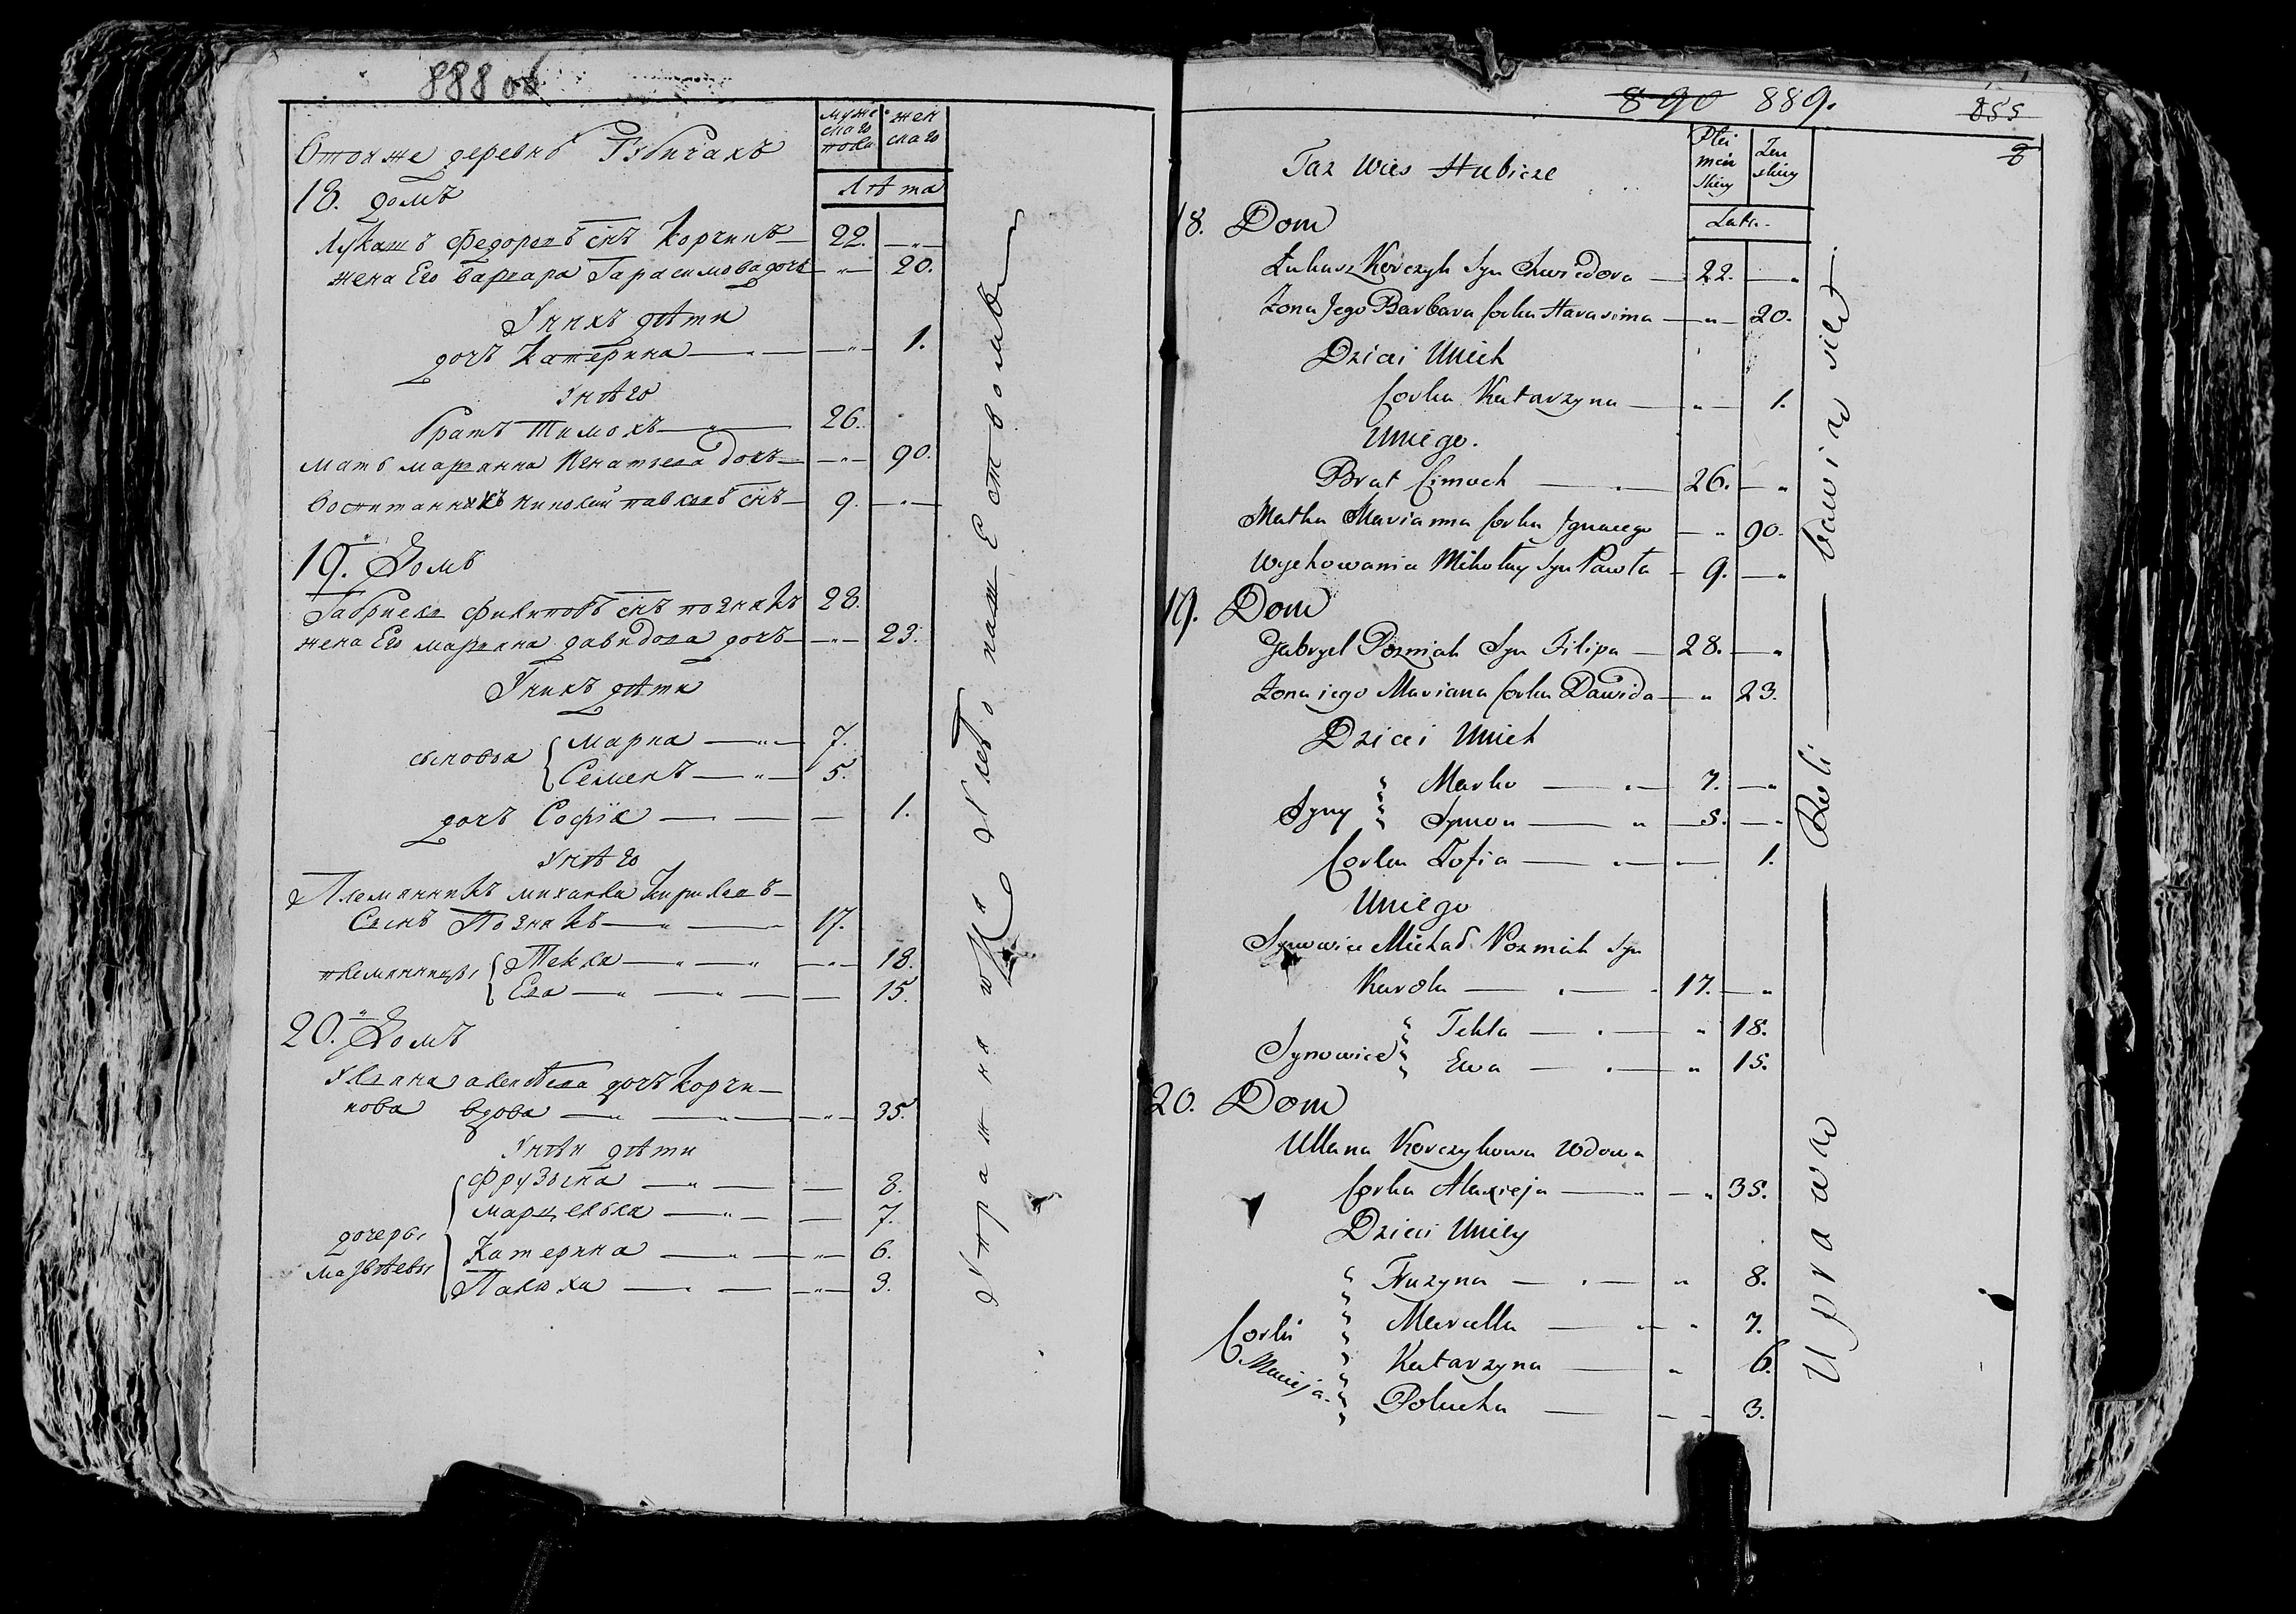 888 об
муже
скаго
пола
жен
скаго
Втойже деревнѣ Губичахъ
лѣта
18. домъ
Лукашъ Федоровъ снъ Корчикъ — 22. — „ —
жена Его варвара Гарасимова дочь — „ — 20.
Унихъ дѣти
дочь Катерина — „ — 1.
Унѣго
братъ Тимохъ — 26.
мать марʼянна Игнатьева дочь — „ — 90.
воспитанникъ николай павловъ снъ — 9. — „ —
19. Домъ
Габриель филиповъ снъ познякъ 28.
жена Его марʼянна давидова дочь — „ — 23.
Унихъ дѣти
сыновья { Марка — „ — 7.
Семенъ — „ — 5.
дочь Софія — 1.
Унѣго
Племянникъ михайла Кириловъ —
Сынъ Познякъ — „ — 17.
племянницы { Текла — „ — „ — 18.
Ева — „ — „ — 15.
20. Домъ
Ульяна алексѣева дочь Корчи-
кова вдова — „ — „ — 35.
Унѣи дѣти
дочеры
матвѣевы
Фрузына — „ — 8.
марцелька — „ — 7.
Катерина — „ — 6.
Палюха — „ — 3.
890 889.
855
8
Płci
męż
skiey
Żeń
skiey
Taz Wies Hubicze
Lata
18. Dom
Łukasz Korczyk Syn Chwiedora — 22. — „
Zona Jego Barbara Corka Harasima — „ — 20.
Dzieci Unich
Corka Katarzyna — „ — 1.
Uniego.
Brat Cimoch — 26. — „
Matka Marianna Corka Jgnacego — „ 90.
Wychowaniec Mikołay Syn Pawła — 9. — „
19. Dom
Gabryel Pozniak Syn Filipa — 28. — „
Zona jego Mariana Corka Dawida — „ 23.
Dzieci Unich
Syny Marko — 7. — „
Symon — „ — 5. — „
Corka Zofia — 1.
Uniego
Synowiec Michał Pozniak Syn
Karola — 17. — „
Synowice Tekla — „ 18.
Ewa — „ 15.
20. Dom
Ullana Korczykowa Wdowa
Corka Alexieja — „ — „ 35.
Dzieci Uniey
Corki
Macieja.
Fruzyna — „ 8.
Marcella — „ 7.
Katarzyna — „ 6.
Polucha — 3.
Uprawą — Roli — bawią się.